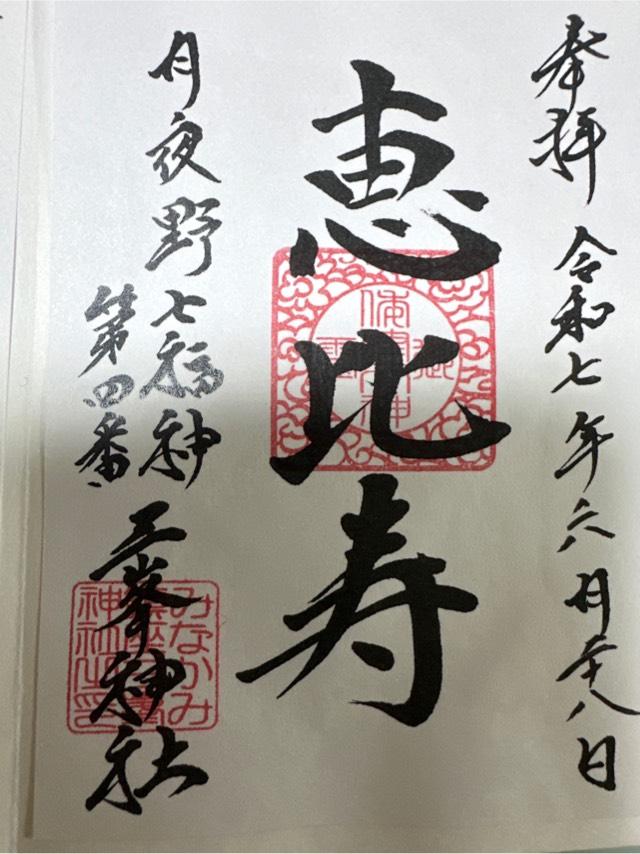 奉拝 令和七年六月廿八日
恵比寿
月夜野七福神
第四番
三峯神社
みなかみ
神社之印